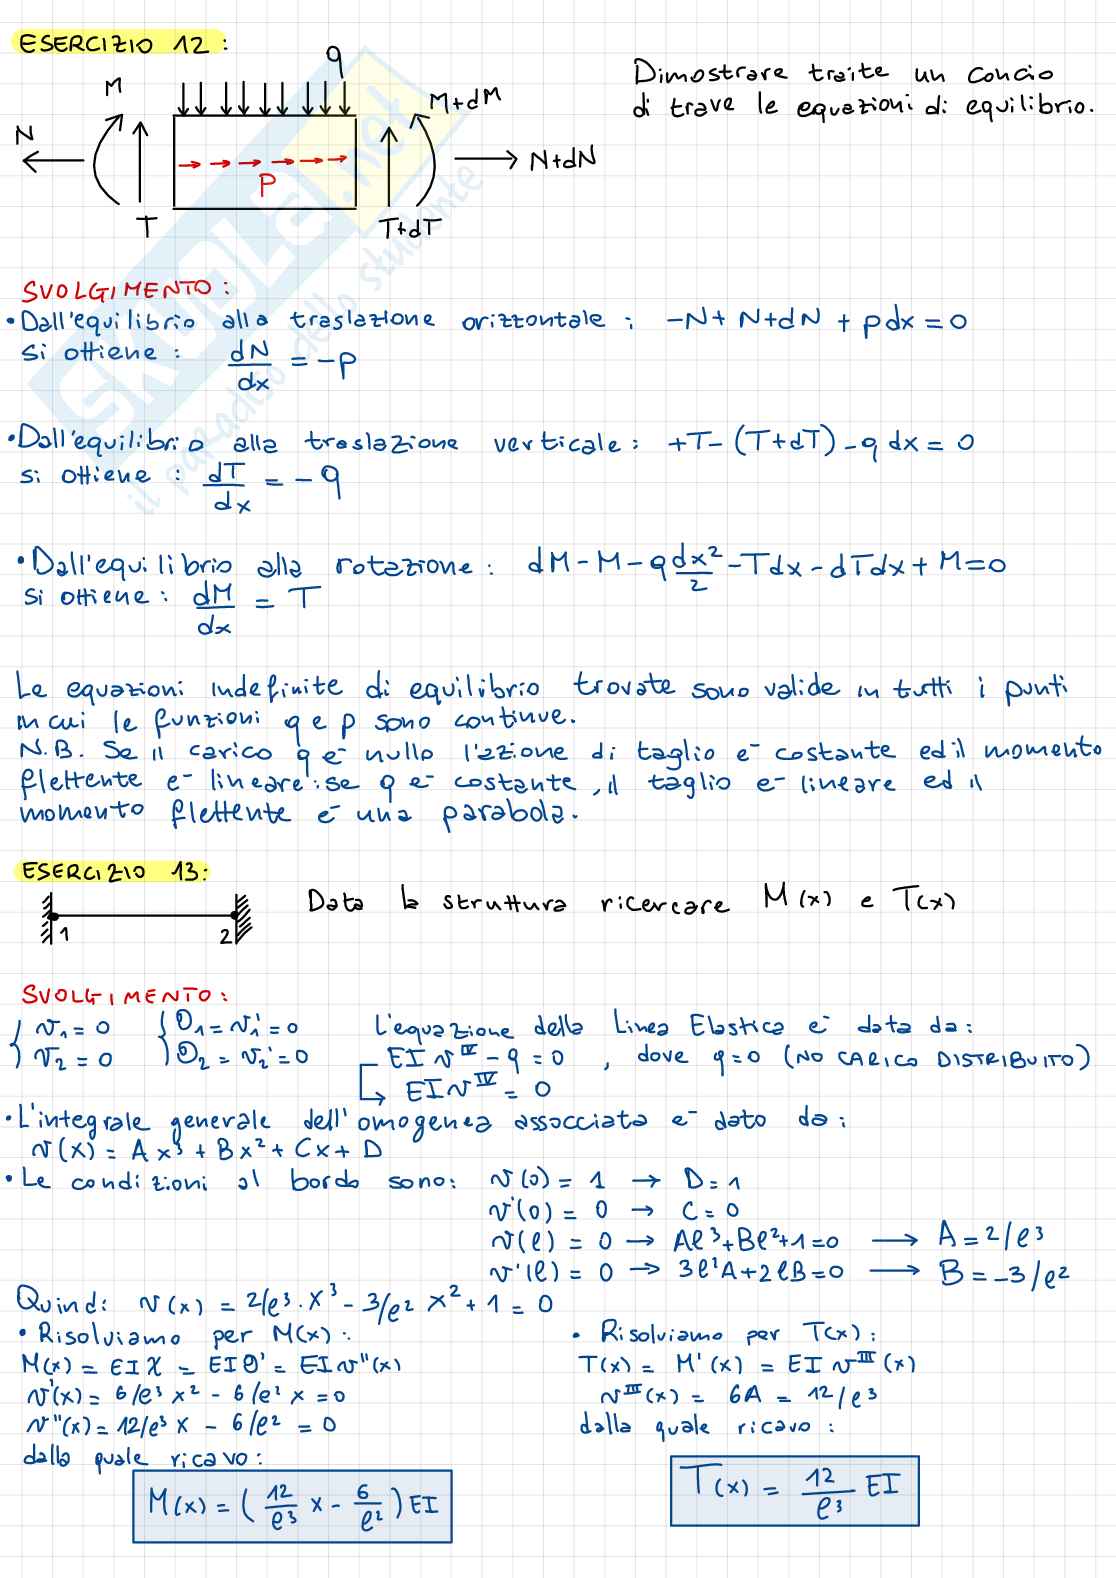 ESERCIZIO 12:
q
M
M+dM
N
N+dN
P
T
T+dT
Dimostrare traite un concio
di trave le equazioni di equilibrio.
SKUOLA.net
il paradiso dello studente
SVOLGIMENTO:
• Dall'equilibrio alla traslazione orizzontale: -N+N+dN+pdx=0
si ottiene: dN/dx = -p
• Dall'equilibrio alla traslazione verticale: +T-(T+dT)-q dx=0
si ottiene: dT/dx = -q
• Dall'equilibrio alla rotazione: dM-M-q dx²/2 -Tdx-dTdx+M=0
si ottiene: dM/dx = T
Le equazioni indefinite di equilibrio trovate sono valide in tutti i punti
in cui le funzioni q e p sono continue.
N.B. Se il carico q e- nullo l'azione di taglio e- costante ed il momento
flettente e- lineare: se q e- costante, il taglio e- lineare ed il
momento flettente e- una parabola.
ESERCIZIO 13:
1 2
Data la struttura ricercare M(x) e T(x)
SVOLGIMENTO:
{ v₁=0 { θ₁=v₁'=0 L'equazione della Linea Elastica e- data da:
v₂=0 θ₂=v₂'=0 EI v^IV - q = 0, dove q=0 (NO CARICO DISTRIBUITO)
↳ EI v^IV = 0
• L'integrale generale dell'omogenea assocciata e- dato da:
v(x) = Ax³ + Bx² + Cx + D
• Le condizioni al bordo sono: v(0) = 1 → D=1
v'(0) = 0 → C=0
v(l) = 0 → Al³+Bl²+1=0 → A=2/l³
v'(l) = 0 → 3l²A+2lB=0 → B=-3/l²
Quindi: v(x) = 2/l³·x³ - 3/l² x² + 1 = 0
• Risolviamo per M(x):
M(x) = EIχ = EIθ' = EIv''(x)
v'(x) = 6/l³ x² - 6/l² x = 0
v''(x) = 12/l³ x - 6/l² = 0
dalla quale ricavo:
M(x) = (12/l³ x - 6/l²) EI
• Risolviamo per T(x):
T(x) = M'(x) = EI v^III(x)
v^III(x) = 6A = 12/l³
dalla quale ricavo:
T(x) = 12/l³ EI